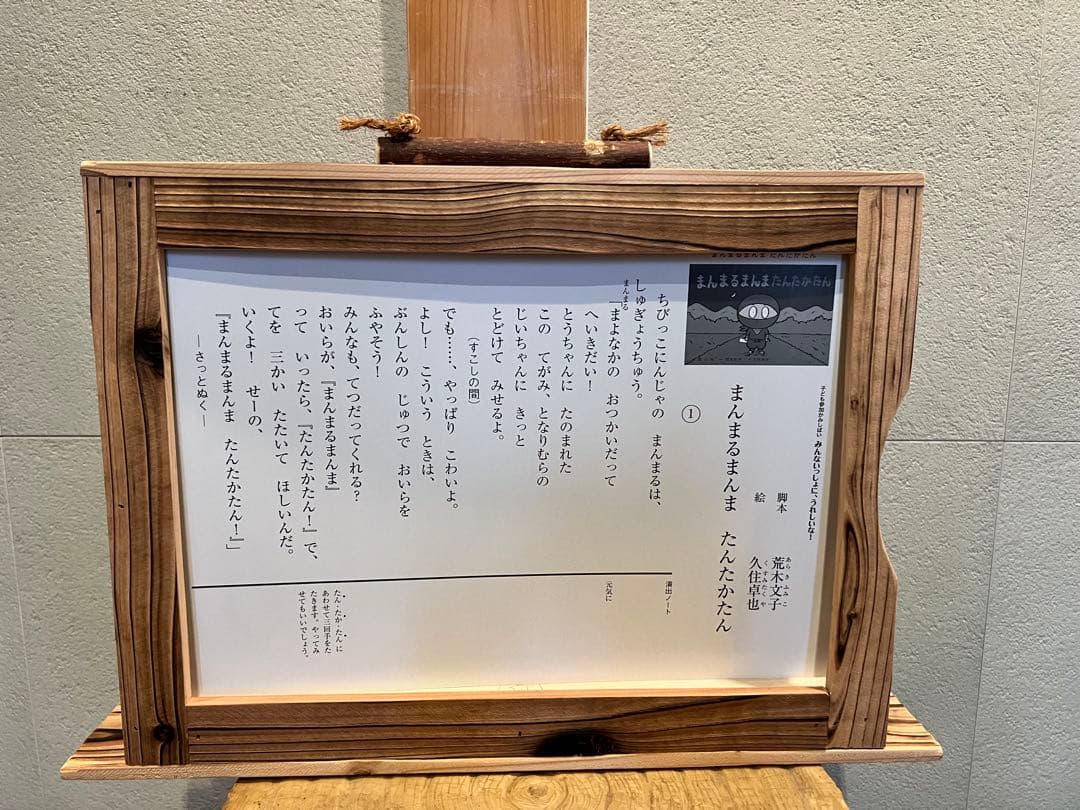 まんまるまんま たんたかたん
まんまるまんま たんたかたん
子ども参加かみしばい みんないっしょに、うれしいな!
脚本 荒木文子
あらきふみこ
絵 久住卓也
くすみたくや
まんまるまんま たんたかたん
①
ちびっこにんじゃの まんまるは、
しゅぎょうちゅう。
まんまる「まよなかの おつかいだって
へいきだい!
とうちゃんに たのまれた
この てがみ、となりむらの
じいちゃんに きっと
とどけて みせるよ。
(すこしの間)
でも……、やっぱり こわいよ。
よし! こういう ときは、
ぶんしんの じゅつで おいらを
ふやそう!
みんなも、てつだってくれる?
おいらが、『まんまるまんま』
って いったら、『たんたかたん!』で、
てを 三かい たたいて ほしいんだ。
いくよ! せーの、
『まんまるまんま たんたかたん!』」
―さっとぬく―
演出ノート
元気に
たん・たか・たん に
あわせて三回手をた
たきます。やってみ
せてもいいでしょう。